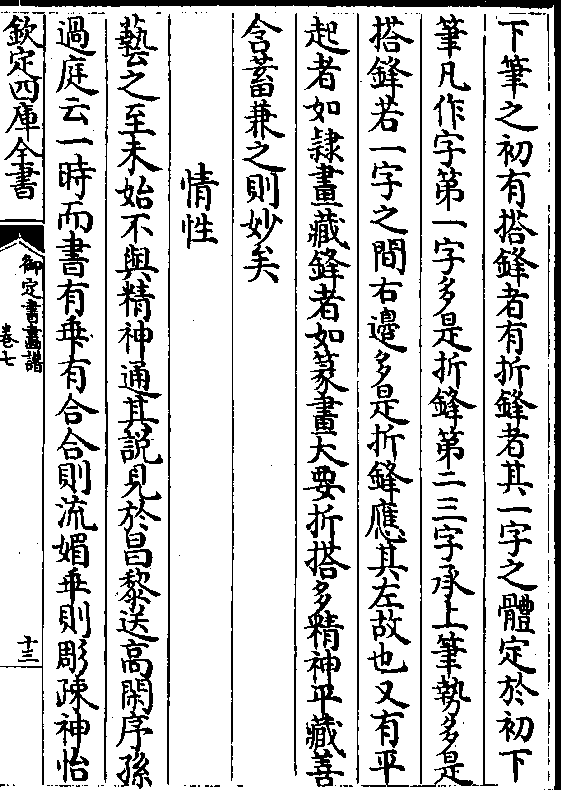 下筆之初有搭鋒者有折鋒者其一字之體定於初下
筆凡作字第一字多是折鋒第二三字承上筆勢多是
搭鋒若一字之間右邊多是折鋒應其左故也又有平
起者如隸畫藏鋒者如篆畫大要折搭多精神平藏善
含蓄兼之則妙矣
情性
藝之至未始不與精神通其説見於昌黎送高閑序孫
過庭云一時而書有乖有合合則流媚乖則彫疎神怡
欽定四庫全書
御定書畫譜
卷七
十三